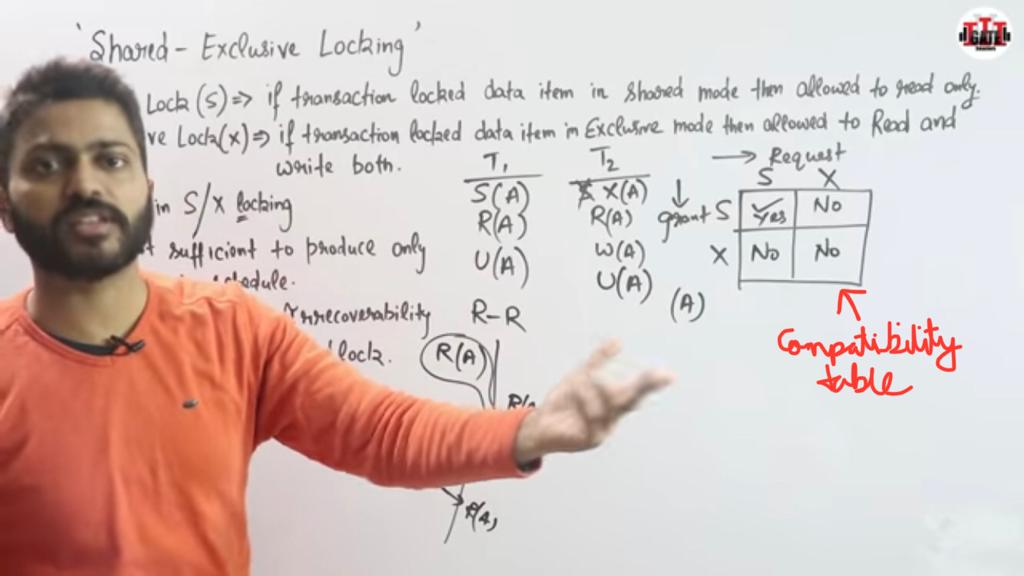 'Shared - Exclusive Locking'
Lock (S) => if transaction locked data item in shared mode then allowed to read only.
ve Lock(X) => if transaction locked data item in Exclusive mode then allowed to Read and
write both.
in S/X locking
sufficient to produce only
Irrecoverability
lock.
T1 T2
S(A) X(A)
R(A) R(A)
U(A) W(A)
U(A)
R-R
R(A)
(A)
→ Request
S X
↓
grant S Yes No
X No No
Compatibility
table
GATE